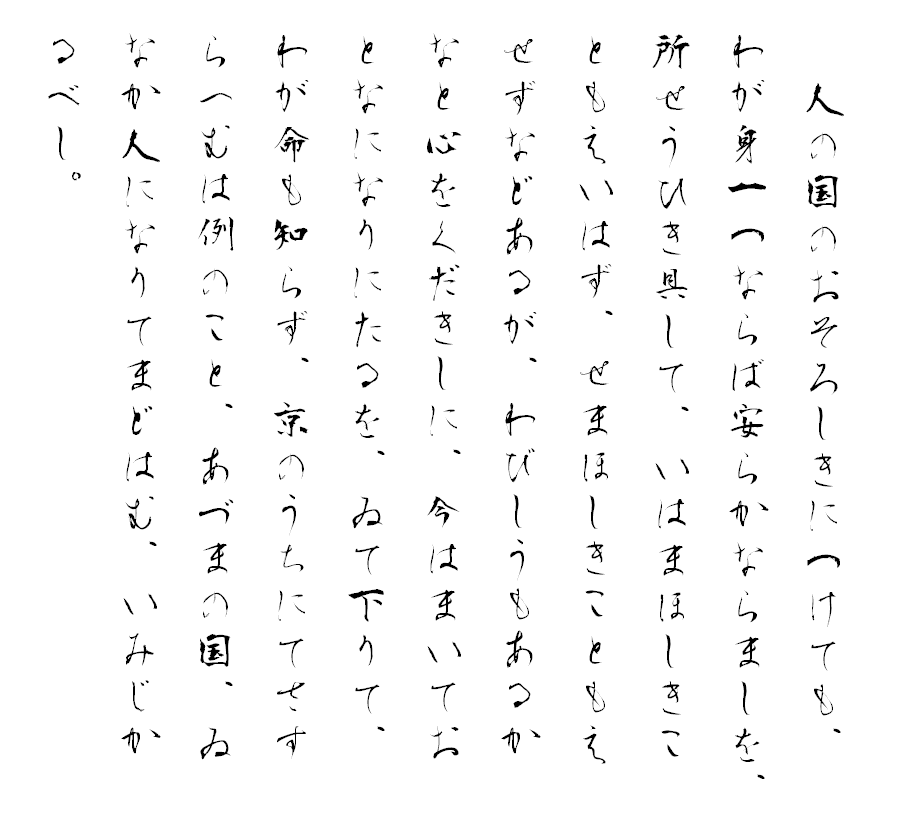 人の国のおそろしきにつけても、
わが身一つならば安らかならましを、
所せうひき具して、いはまほしきこ
ともえいはず、せまほしきこともえ
せずなどあるが、わびしうもあるか
なと心をくだきしに、今はまいてお
となになりにたるを、ゐて下りて、
わが命も知らず、京のうちにてさす
らへむは例のこと、あづまの国、ゐ
なか人になりてまどはむ、いみじか
るべし。